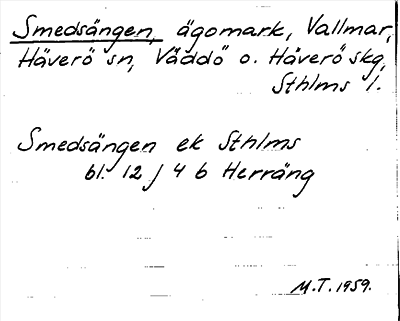 Smedsängen, ägomark, Vallmar,
Häverö sn, Väddö o. Häverö skg,
Sthlms l.
Smedsängen ek Sthlms
bl. 12 J 4 b Herräng
M.T. 1959.